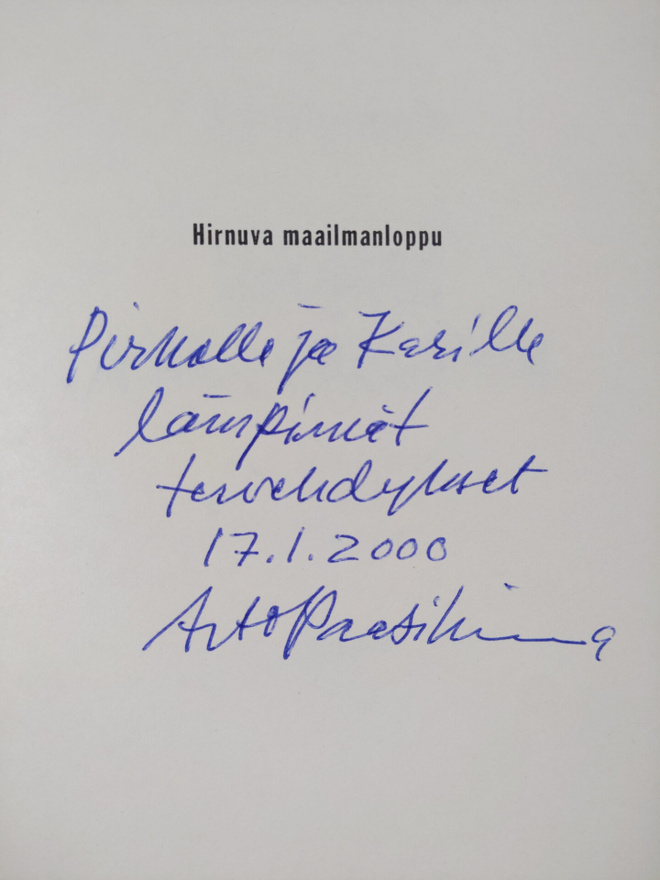 Hirnuva maailmanloppu
Pirkolle ja Karille
lämpimät
tervehdykset
17.1.2000
Arto Paasilinna